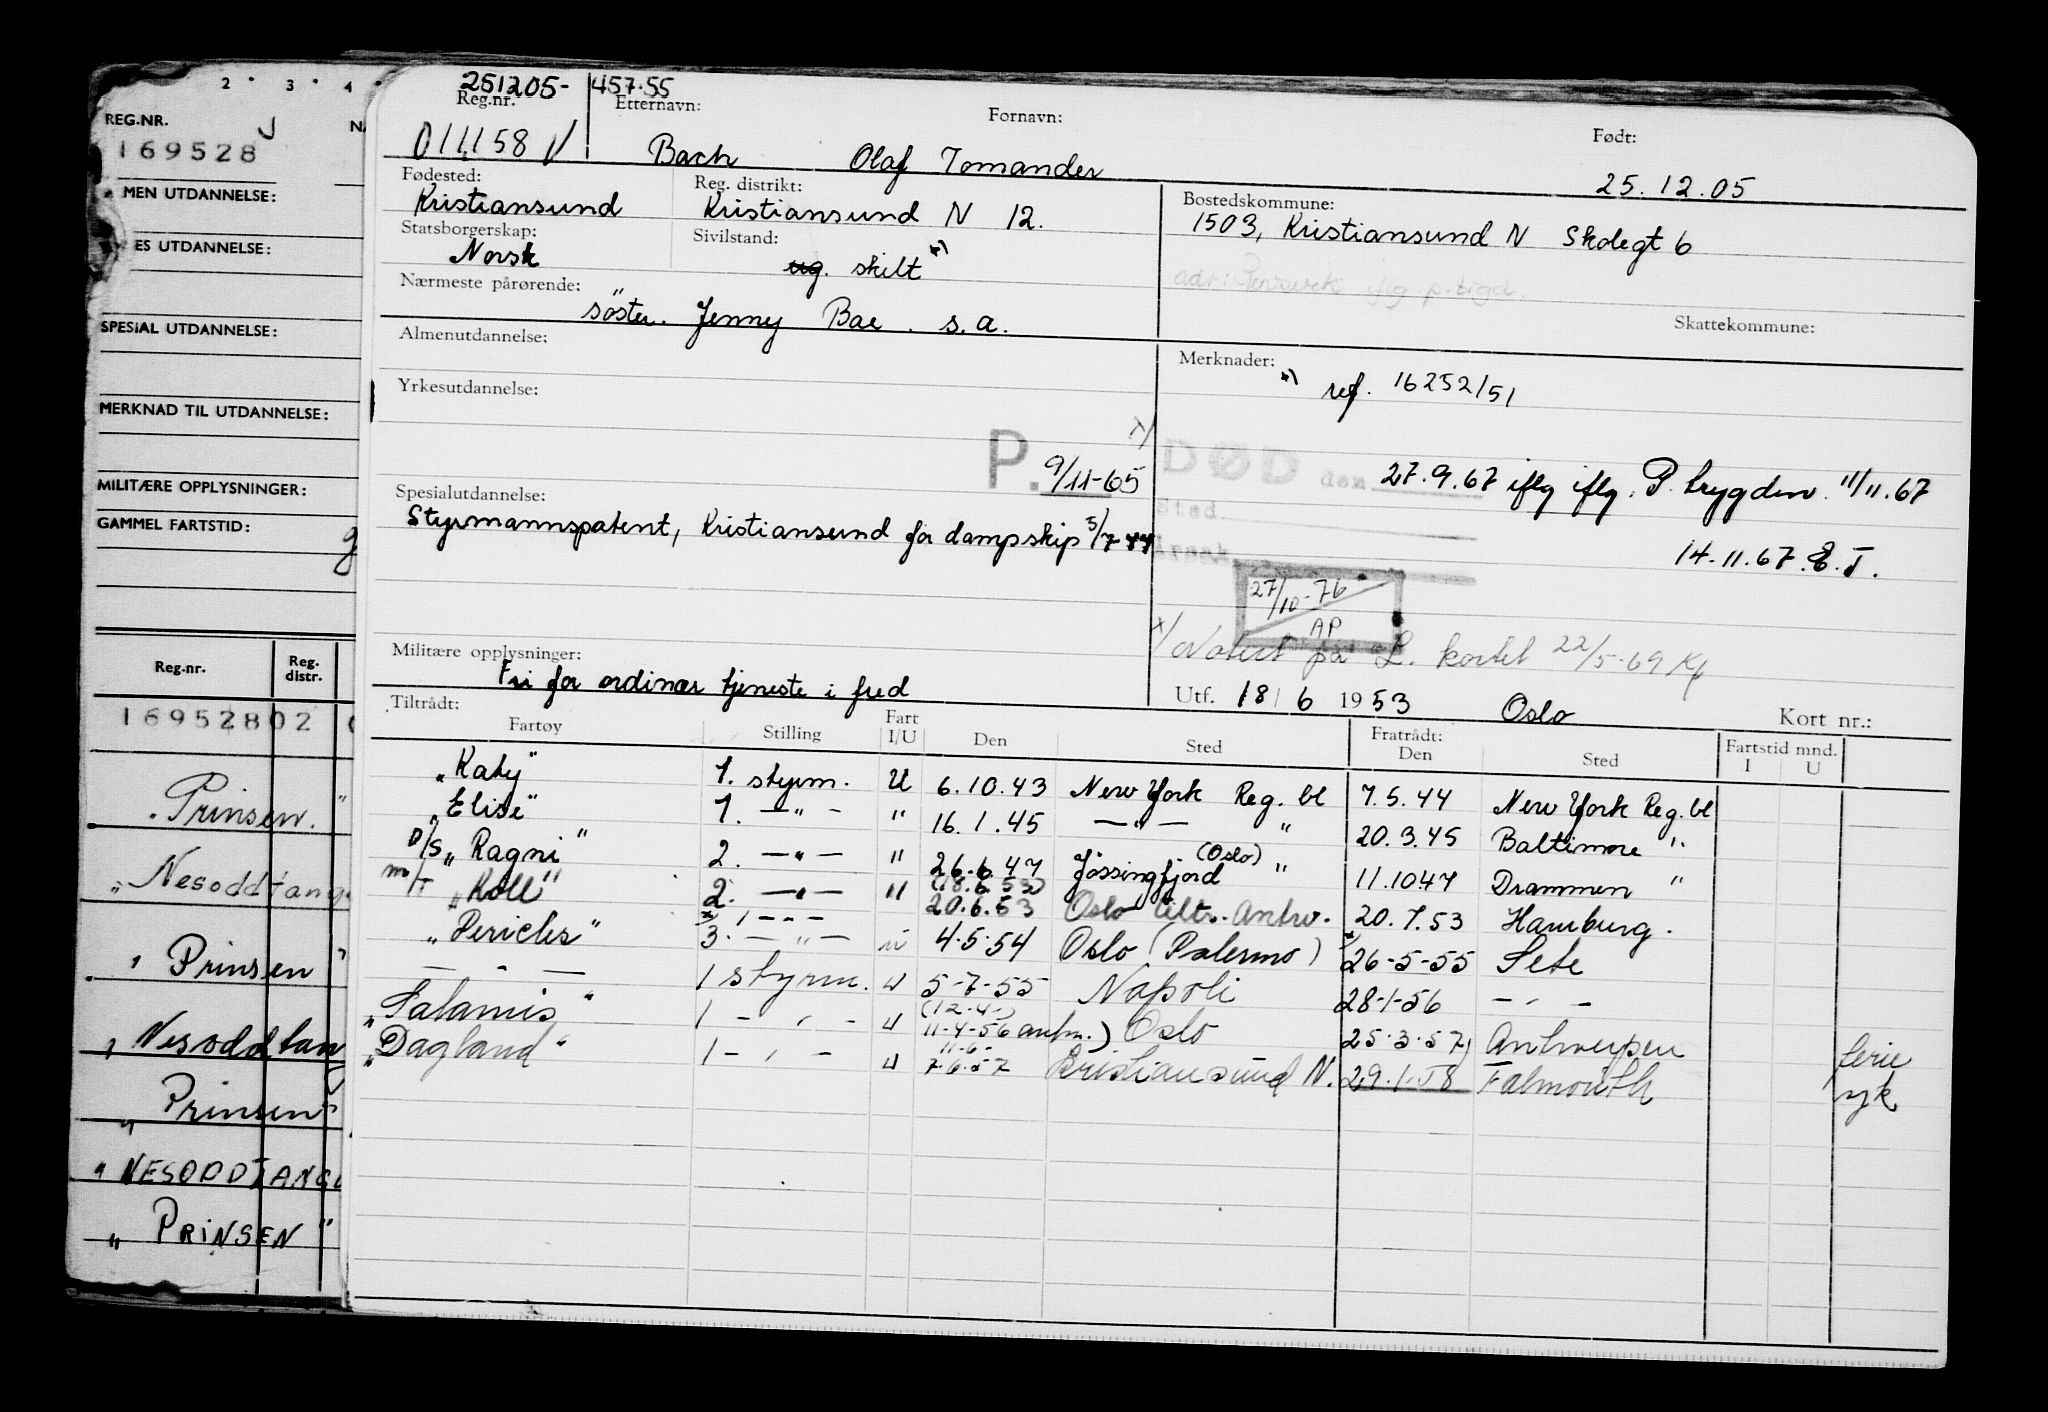 2 3 4
REG.NR.
169528
MEN UTDANNELSE:
ES UTDANNELSE:
SPESIAL UTDANNELSE:
MERKNAD TIL UTDANNELSE:
MILITÆRE OPPLYSNINGER:
GAMMEL FARTSTID:
Reg.nr. Reg. distr.
16952802
"Prinsen"
"Nesoddtang
"Prinsen"
"Nesoddtan
"Prinsen"
"NESODDTANG
"PRINSEN"
251205- 457.55
Reg.nr. Etternavn: Fornavn: Født:
011158 V Bach Olaf Tomander 25.12.05
Fødested: Reg. distrikt: Bostedskommune:
Kristiansund Kristiansund N 12. 1503, Kristiansund N Skolegt 6
Statsborgerskap: Sivilstand:
Norsk ug. skilt x)
Nærmeste pårørende:
søster. Jenny Bae. s.a.
Skattekommune:
Almenutdannelse: Merknader:
x) ref. 16252/51
Yrkesutdannelse:
P. 9/11-65 x/
DØD den 27.9.67 iflg iflg. P. trygden. 11/11.67
Sted.
14.11.67.E.T.
Spesialutdannelse:
Styrmannspatent, Kristiansund for dampskip 5/7 44
27/10-76
AP
x/ Notert på L. kortet 22/5-69
Militære opplysninger:
Fri for ordinær tjeneste i fred
Utf. 18/6 1953 Oslo Kort nr.:
Tiltrådt: Fratrådt:
Fartøy Stilling Fart I/U Den Sted Den Sted Fartstid mnd. I U
"Katy" 1. styrm. U 6.10.43 New York Reg. bl 7.5.44 New York Reg. bl
"Elise" 1. —"— " 16.1.45 —"— " 20.3.45 Baltimore "
D/S "Ragni" 2. —"— " 26.6.47 Jøssingfjord (Oslo) " 11.10.47 Drammen "
m/T "Koll" 2. —"— " (18.6.53) 20.6.53 Oslo tiltr. Antw. 20.7.53 Hamburg.
"Pericles" x 1 —"— 3. —"— u 4.5.54 Oslo (Palermo) 26-5-55 Sete
— " — 1 styrm. u 5-7-55 Napoli 28-1-56 — " —
"Salamis" 1 — " — u (12.4.) 11-4-56 ankm.) Oslo 25.3.57) Antwerpen ferie
"Dagland" 1 — " — u 11-6- 7-6-57 Kristiansund N. 29.1.58 Falmouth syk